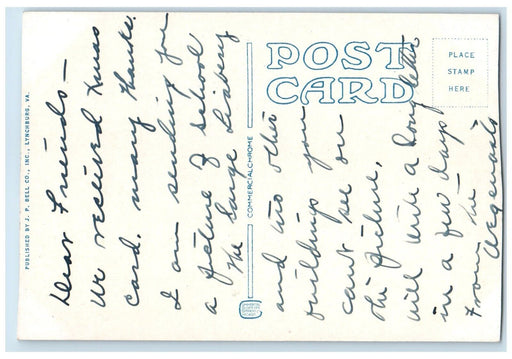 POST
CARD
PLACE
STAMP
HERE
PUBLISHED BY J. P. BELL CO., INC., LYNCHBURG, VA.
COMMERCIALCHROME
Dear Friends -
We received Xmas
card. many thanks.
I am sending you
a picture of school
The large Library
and two other
buildings you
can't see on
this picture,
will write a long letter
in a few days
From the